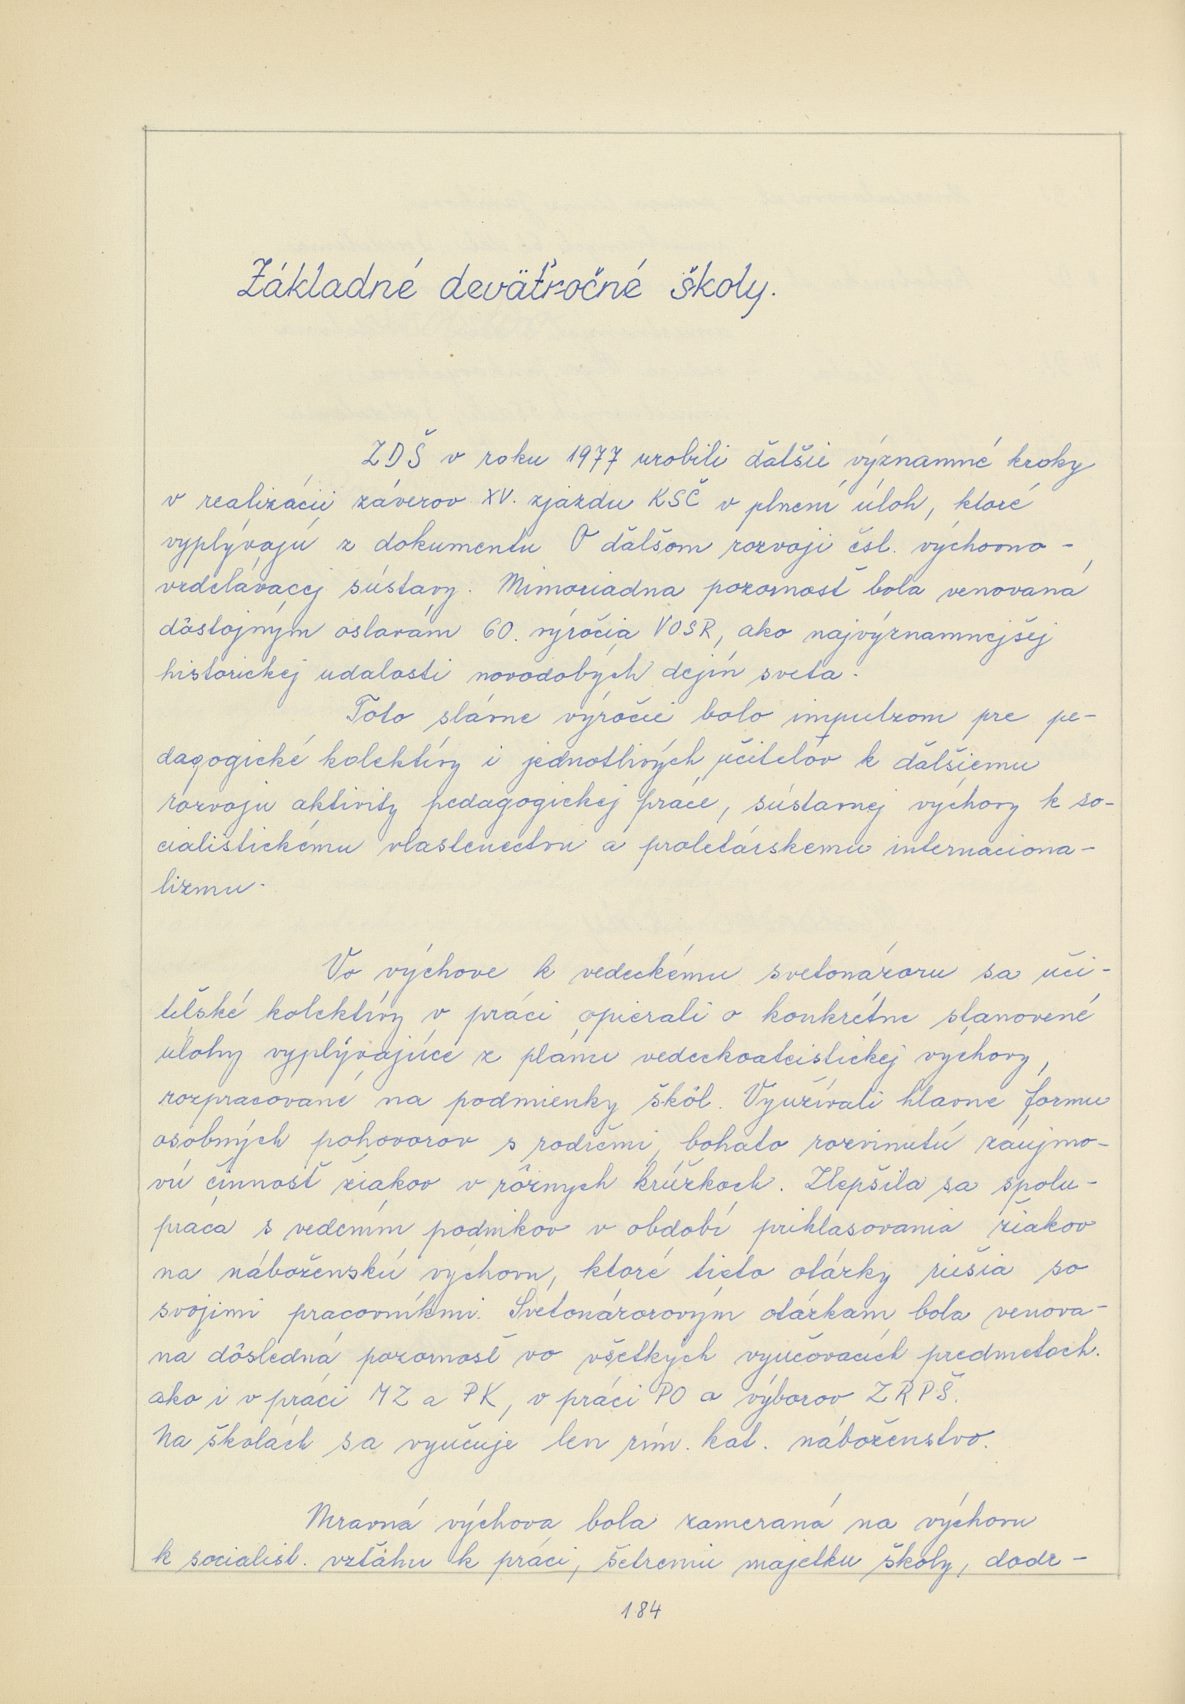 Základné deväťročné školy.
ZDŠ v roku 1977 urobili ďalšie významné kroky
v realizácii záverov XV. zjazdu KSČ v plnení úloh, ktoré
vyplývajú z dokumentu O ďalšom rozvoji čsl. výchovno-
vzdelávacej sústavy. Mimoriadna pozornosť bola venovaná
dôstojným oslavám 60. výročia VOSR, ako najvýznamnejšej
historickej udalosti novodobých dejín sveta.
Toto slávne výročie bolo impulzom pre pe-
dagogické kolektívy i jednotlivých učiteľov k ďalšiemu
rozvoju aktivity pedagogickej práce, sústavnej výchovy k so-
cialistickému vlastenectvu a proletárskemu internaciona-
lizmu.
Vo výchove k vedeckému svetonázoru sa uči-
teľské kolektívy v práci opierali o konkrétne stanovené
úlohy vyplývajúce z plánu vedeckoateistickej výchovy,
rozpracované na podmienky škôl. Využívali hlavne formu
osobných pohovorov s rodičmi, bohato rozvinutú záujmo-
vú činnosť žiakov v rôznych krúžkoch. Zlepšila sa spolu-
práca s vedením podnikov v období prihlasovania žiakov
na náboženskú výchovu, ktoré tieto otázky riešia so
svojimi pracovníkmi. Svetonázorovým otázkam bola venova-
ná dôsledná pozornosť vo všetkých vyučovacích predmetoch.
ako i v práci MZ a PK, v práci PO a výborov ZRPŠ.
Na školách sa vyučuje len rím. kat. náboženstvo.
Mravná výchova bola zameraná na výchovu
k socialist. vzťahu k práci, šetreniu majetku školy, dodr-
184